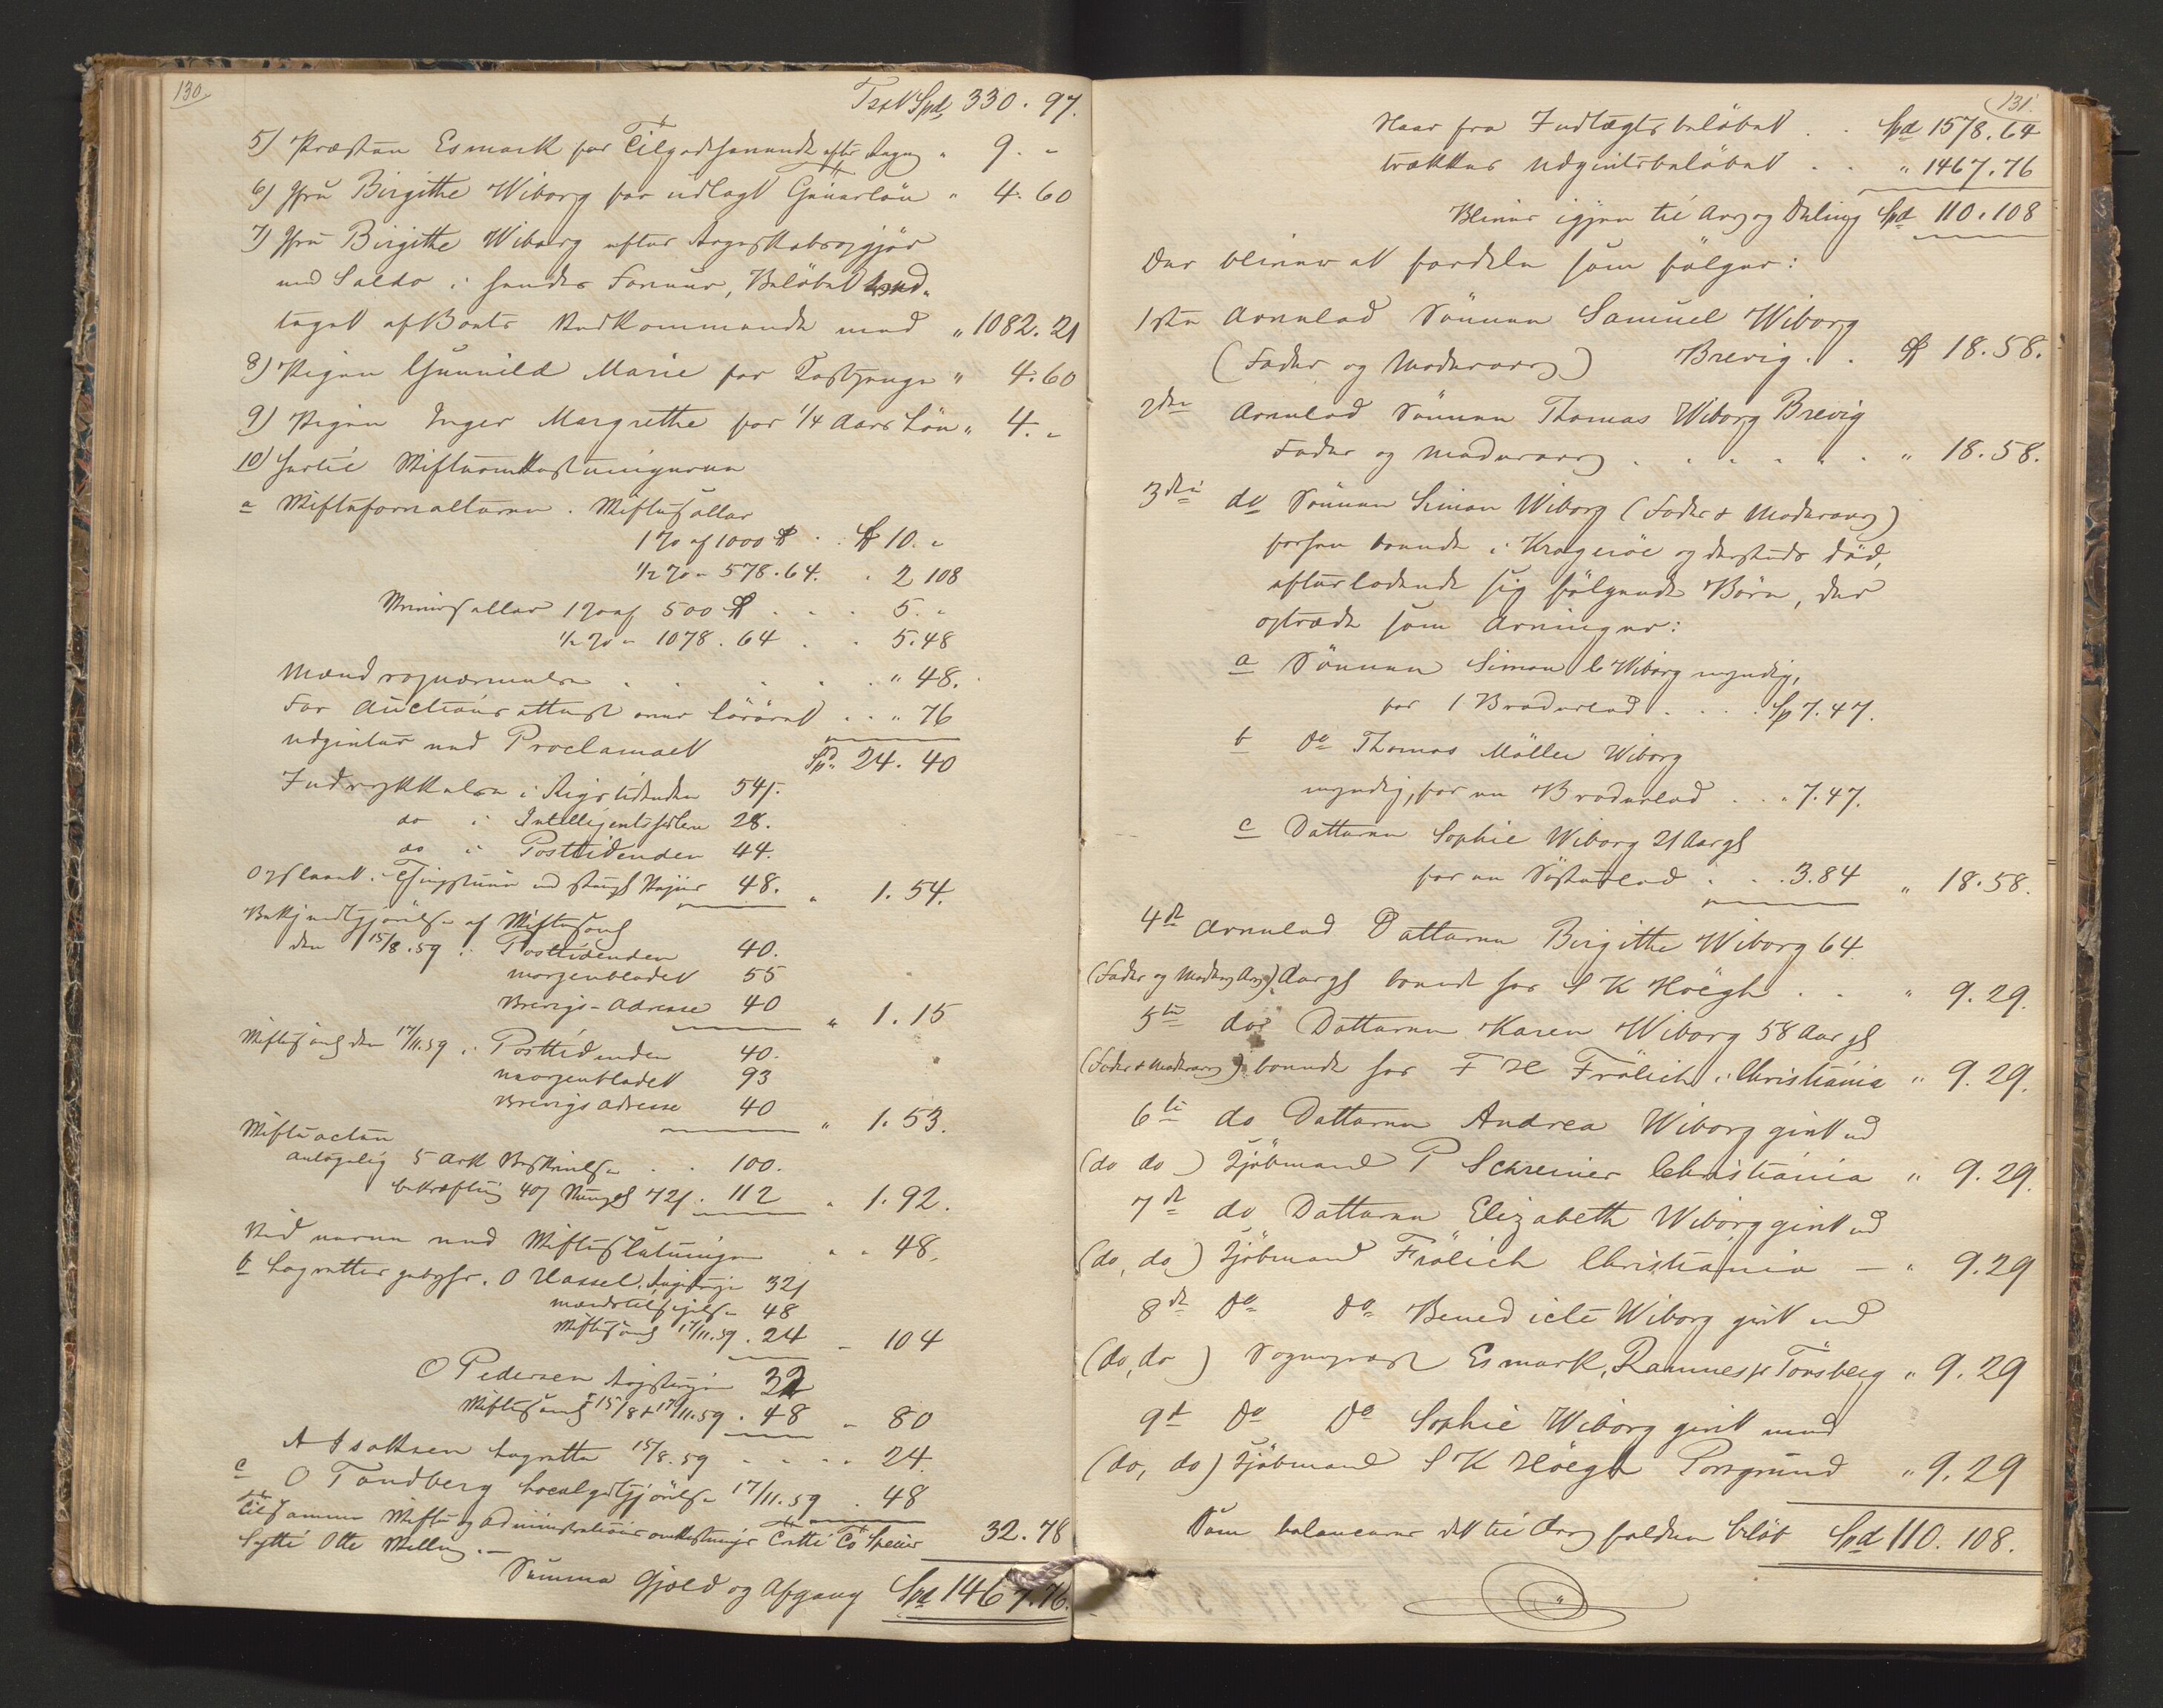 130.
Trsp Spd 330. 97.
5) Præsten Esmark for Tilgodehavende efter Regng " 9. "
6) Jfru Birgithe Wiborg for udlagt Gravøl " 4. 60
7) Jfru Birgithe Wiborg efter Regnskabsopgjør
med Saldo i hendes Faveur, Beløbet
taget af Boets Vedkommende med " 1082. 21
8) Pigen Gunnild Marie for Kostpenge " 4. 60
9) Pigen Inger Margrethe for 1/4 Aars Løn " 4. "
10) hertil Skifteomkostningerne
a Skifteforvalteren. Skiftesallar
1 % af 1000 Spd . . Spd 10. "
1/2 % " 578. 64. . 2 108
Skrivsallar 1 % af 500 Spd . . . 5. "
1/2 % " 1078. 64 . . 5. 48
Mænds opnævnelse . . . . . " 48.
For Auctions attest over Løsøret . . " 76
udgivter ved Proclamaet Spd 24. 40
Indrykkelse i Rigstidenden 54 s.
do i Intelligentssedlen 28.
do i Posttidenden 44.
Opslaaet i Thingstuen ved stempl Papiir 48. " 1. 54.
Bekjendtgjørelse af Skiftesaml
den 15/8. 59 i Posttidenden 40.
Morgenbladet 55
Brevigs-Adresse 40 " 1. 15
Skiftesaml den 17/11. 59 i Posttidenden 40.
Morgenbladet 93
Brevigs Adresse 40 " 1. 53.
Skifteacten
antagelig 5 Ark Beskrivelse . . 100.
bekræftig 40 s Stempel 72 s. 112 " 1. 92.
Vidnerne ved Skifteslutningen " " 48.
b Lagrettes gebyhr. O Hassel, Registrgn 32 s
mændstilsigelse 48
Skiftesaml 17/11. 59. 24 " 104
O Pedersen Registrgn 32
Skiftesaml 15/8 & 17/11. 59. 48 " 80
A Isaksen lagrette 15/8. 59 . . . . 24.
c O Tandberg 17/11. 59 . 48
Tilsammen Skifte og Administrations omkostninger Tretti To Specier 32. 78
Sytti Otte Skilling. —
Summa Gjæld og Afgang Spd 1467. 76.
131.
Naar fra Indtægts beløbet . . Spd 1578. 64
trækkes Udgivtsbeløbet . . " 1467. 76
Bliver igjen til Arv og Deling Spd 110. 108
Der bliver at fordele som følger:
1ste Arvelod Sønnen Samuel Wiborg
(Fader og Moderarv) Brevig . . Spd 18. 58.
2den Arvelod Sønnen Thomas Wiborg Brevig
Fader og Moderarv . . . . . . " 18. 58.
3die do Sønnen Simon Wiborg (Fader & Moderarv)
forhen boende i Kragerøe og dersteds død,
efterladende sig følgende Børn, der
optræde som Arvinger:
a Sønnen Simon C Wiborg myndig,
for 1 Broderlod . . . . Sp 7. 47.
b do Thomas Möller Wiborg
myndig, for en Broderlod . . . 7. 47.
c Datteren Sophie Wiborg 21 Aar gl
for en Søsterlod . . . 3. 84 " 18. 58.
4de Arvelod Datteren Birgithe Wiborg 64
(Fader og Moders Arv) Aar gl boende hos S K Höegh . . " 9. 29.
5te do Datteren Karen Wiborg 58 Aar gl
(Fader & Moderarv) boende hos F H Frölich i Christiania " 9. 29.
6te do Datteren Andrea Wiborg givt ved
(do do) Kjöbmand P Schreiner Christiania " 9. 29.
7de do Datteren Elizabeth Wiborg givt ved
(do, do) Kjöbmand Frölich Christiania — " 9. 29
8de do do Benedicte Wiborg givt med
(do, do) Sognepræst Esmark, Ramnes pr Tönsberg " 9. 29
9de do do Sophie Wiborg givt med
(do, do) Kjöbmand S K Höegh Porsgrund " 9. 29
Som balancerer det til Arv faldne beløb Spd 110. 108.